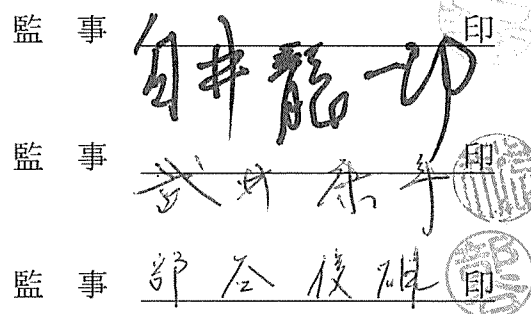 監 事 臼井龍一郎 印
監 事 武井康年 印
監 事 部谷俊雄 印